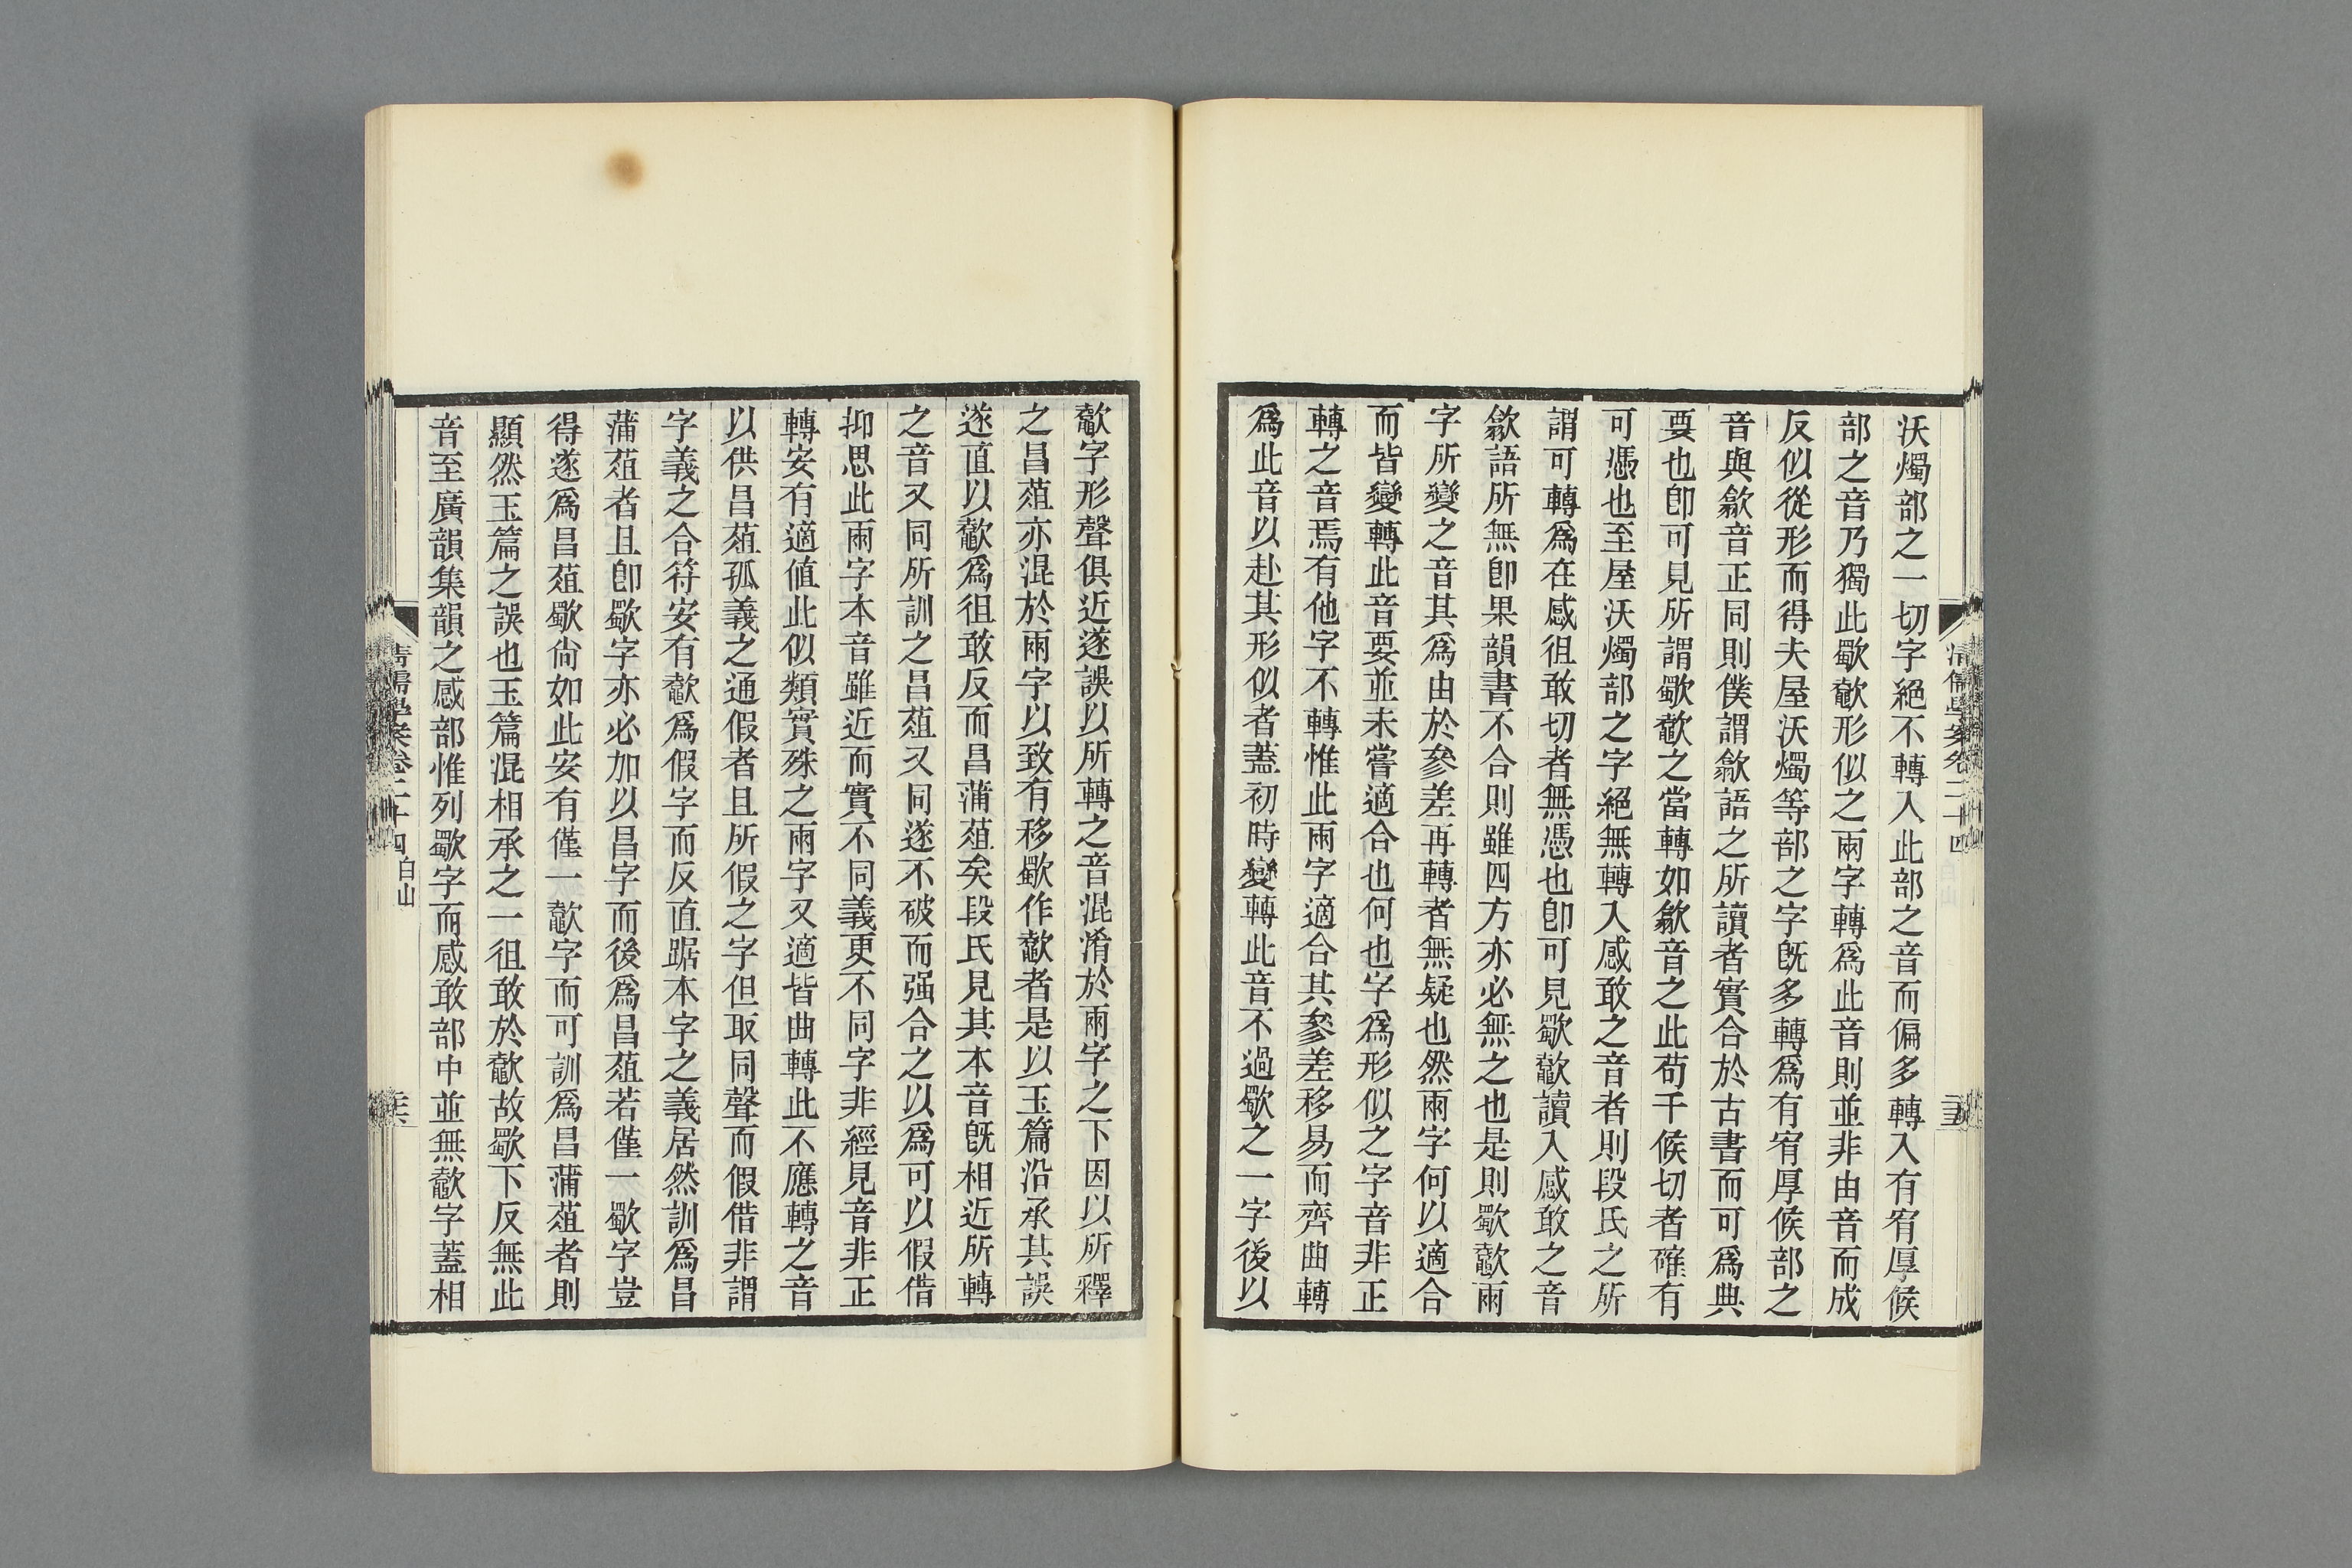 沃燭部之一切字絕不轉入此部之音而偏多轉入有宥厚候
部之音乃獨此歜歜形似之兩字轉爲此音則並非由音而成
反似從形而得夫屋沃燭等部之字旣多轉爲有宥厚候部之
音與歙音正同則僕謂歙語之所讀者實合於古書而可爲典
要也卽可見所謂歜歜之當轉如歙音之此苟千候切者確有
可憑也至屋沃燭部之字絕無轉入感敢之音者則段氏之所
謂可轉爲在感徂敢切者無憑也卽可見歜歜讀入感敢之音
歙語所無卽果韻書不合則雖四方亦必無之也是則歜歜兩
字所變之音其爲由於參差再轉者無疑也然兩字何以適合
而皆變轉此音要並未嘗適合也何也字爲形似之字音非正
轉之音焉有他字不轉惟此兩字適合其參差移易而齊曲轉
爲此音以赴其形似者蓋初時變轉此音不過歜之一字後以
歜字形聲俱近遂誤以所轉之音混淆於兩字之下因以所釋
之昌蒩亦混於兩字以致有移歜作歜者是以玉篇沿承其誤
遂直以歜爲徂敢反而昌蒲蒩矣段氏見其本音旣相近所轉
之音又同所訓之昌蒩又同遂不破而强合之以爲可以假借
抑思此兩字本音雖近而實不同義更不同字非經見音非正
轉安有適值此似類實殊之兩字又適皆曲轉此不應轉之音
以供昌蒩孤義之通假者且所假之字但取同聲而假借非謂
字義之合符安有歜爲假字而反直踞本字之義居然訓爲昌
蒲蒩者且卽歜字亦必加以昌字而後爲昌蒩若僅一歜字豈
得遂爲昌蒩歜尙如此安有僅一歜字而可訓爲昌蒲蒩者則
顯然玉篇之誤也玉篇混相承之一徂敢於歜故歜下反無此
音至廣韻集韻之感部惟列歜字而感敢部中並無歜字蓋相
清儒學案卷二十四 白山